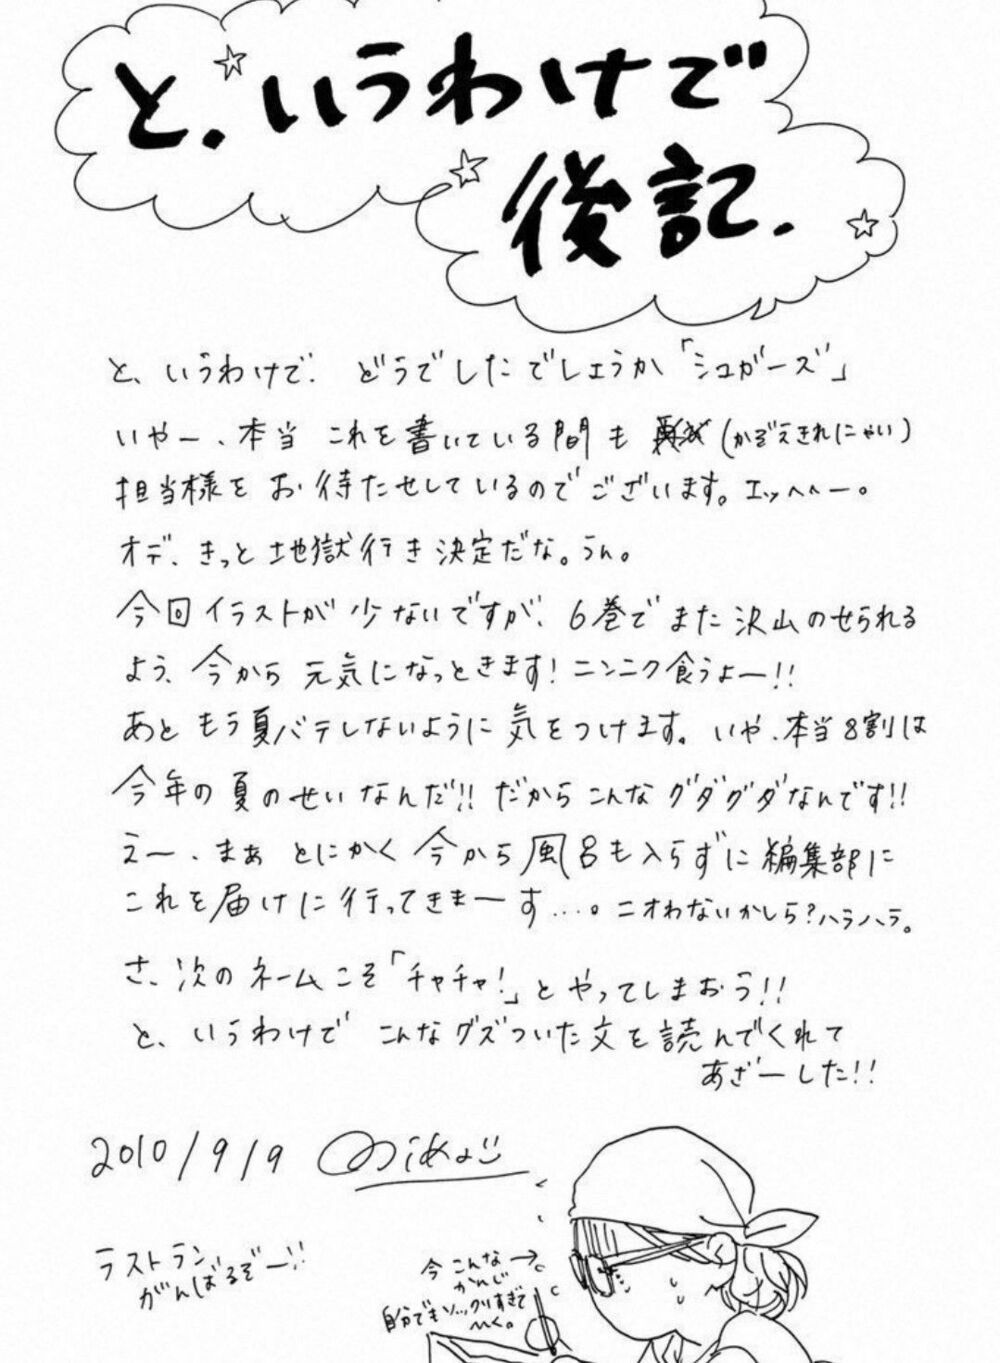 と、いうわけで
後記.
と、いうわけで. どうでしたでしょうか「シュガーズ」
いやー、本当 これを書いている間も (かぞえきれにゃい)
担当様を お待たせしているのでございます。エッヘヘー。
オデ、きっと 地獄行き決定だな。うん。
今回イラストが 少ないですが、6巻で また 沢山のせられる
よう、今から 元気になっときます!ニンニク食うよー!!
あと もう夏バテしないように 気をつけます。いや、本当8割は
今年の夏のせいなんだ!! だから こんな グダグダなんです!!
えー、まぁ とにかく 今から 風呂も入らずに 編集部に
これを届けに行ってきまーす…。ニオわないかしら?ハラハラ。
さ、次の ネームこそ「チャチャ!」と やってしまおう!!
と、いうわけで こんなグズついた文を読んでくれて
あざーした!!
2010/9/9
ラストラン
がんばるぞー!!
今 こんな→
かんじ
自分でもソックリすぎて